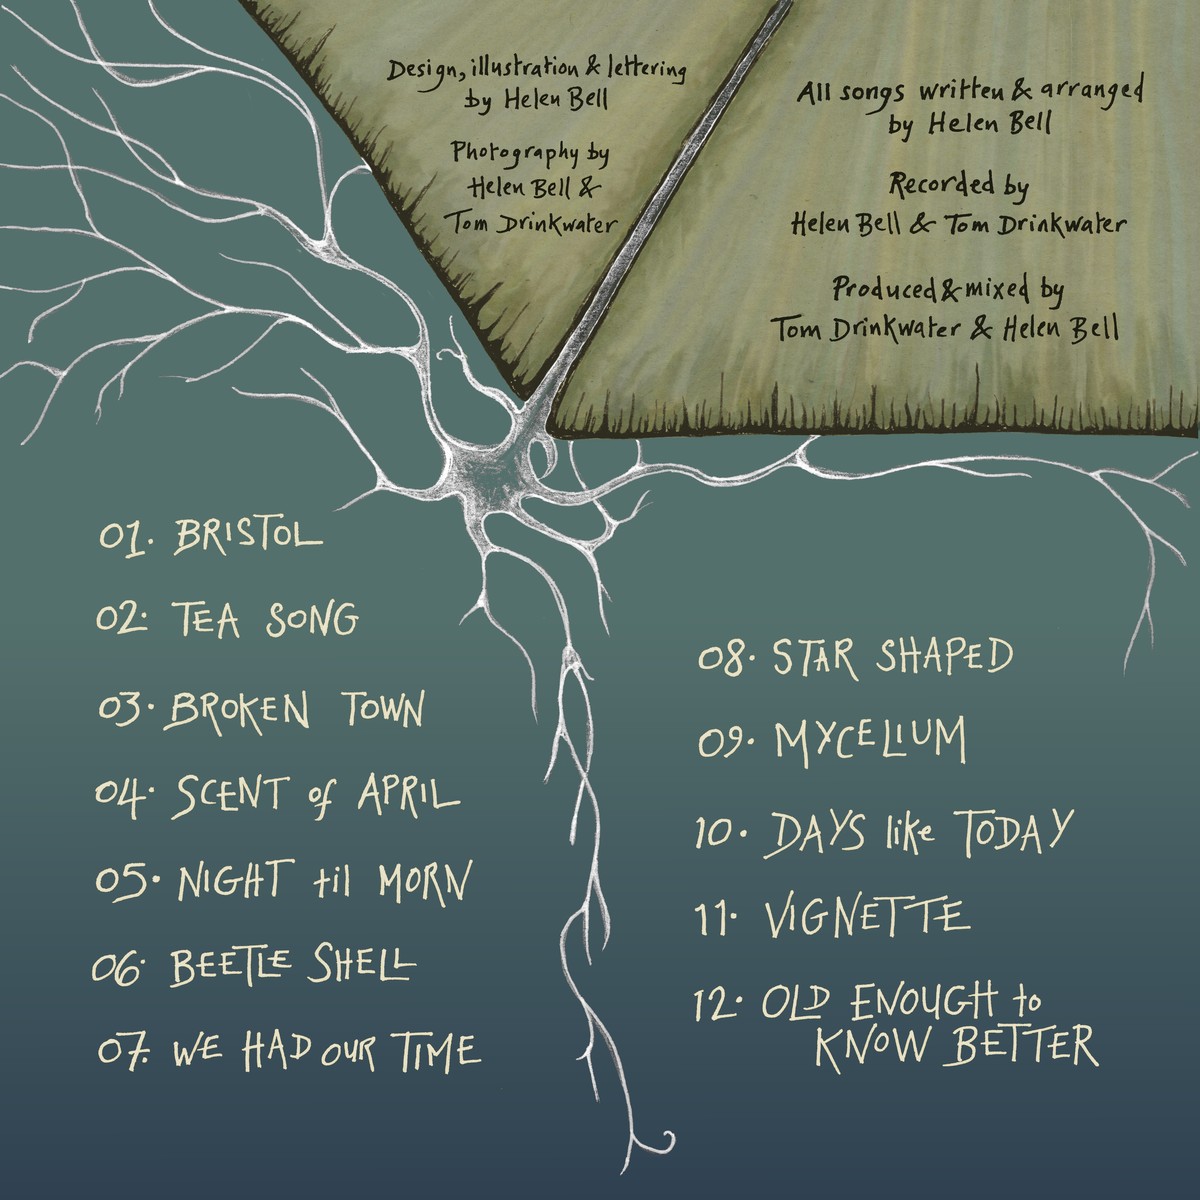 Design, illustration & lettering
by Helen Bell
Photography by
Helen Bell &
Tom Drinkwater
All songs written & arranged
by Helen Bell
Recorded by
Helen Bell & Tom Drinkwater
Produced & mixed by
Tom Drinkwater & Helen Bell
01. BRISTOL
02. TEA SONG
03. BROKEN TOWN
04. SCENT of APRIL
05. NIGHT til MORN
06. BEETLE SHELL
07. WE HAD OUR TIME
08. STAR SHAPED
09. MYCELIUM
10. DAYS like TODAY
11. VIGNETTE
12. OLD ENOUGH to
KNOW BETTER